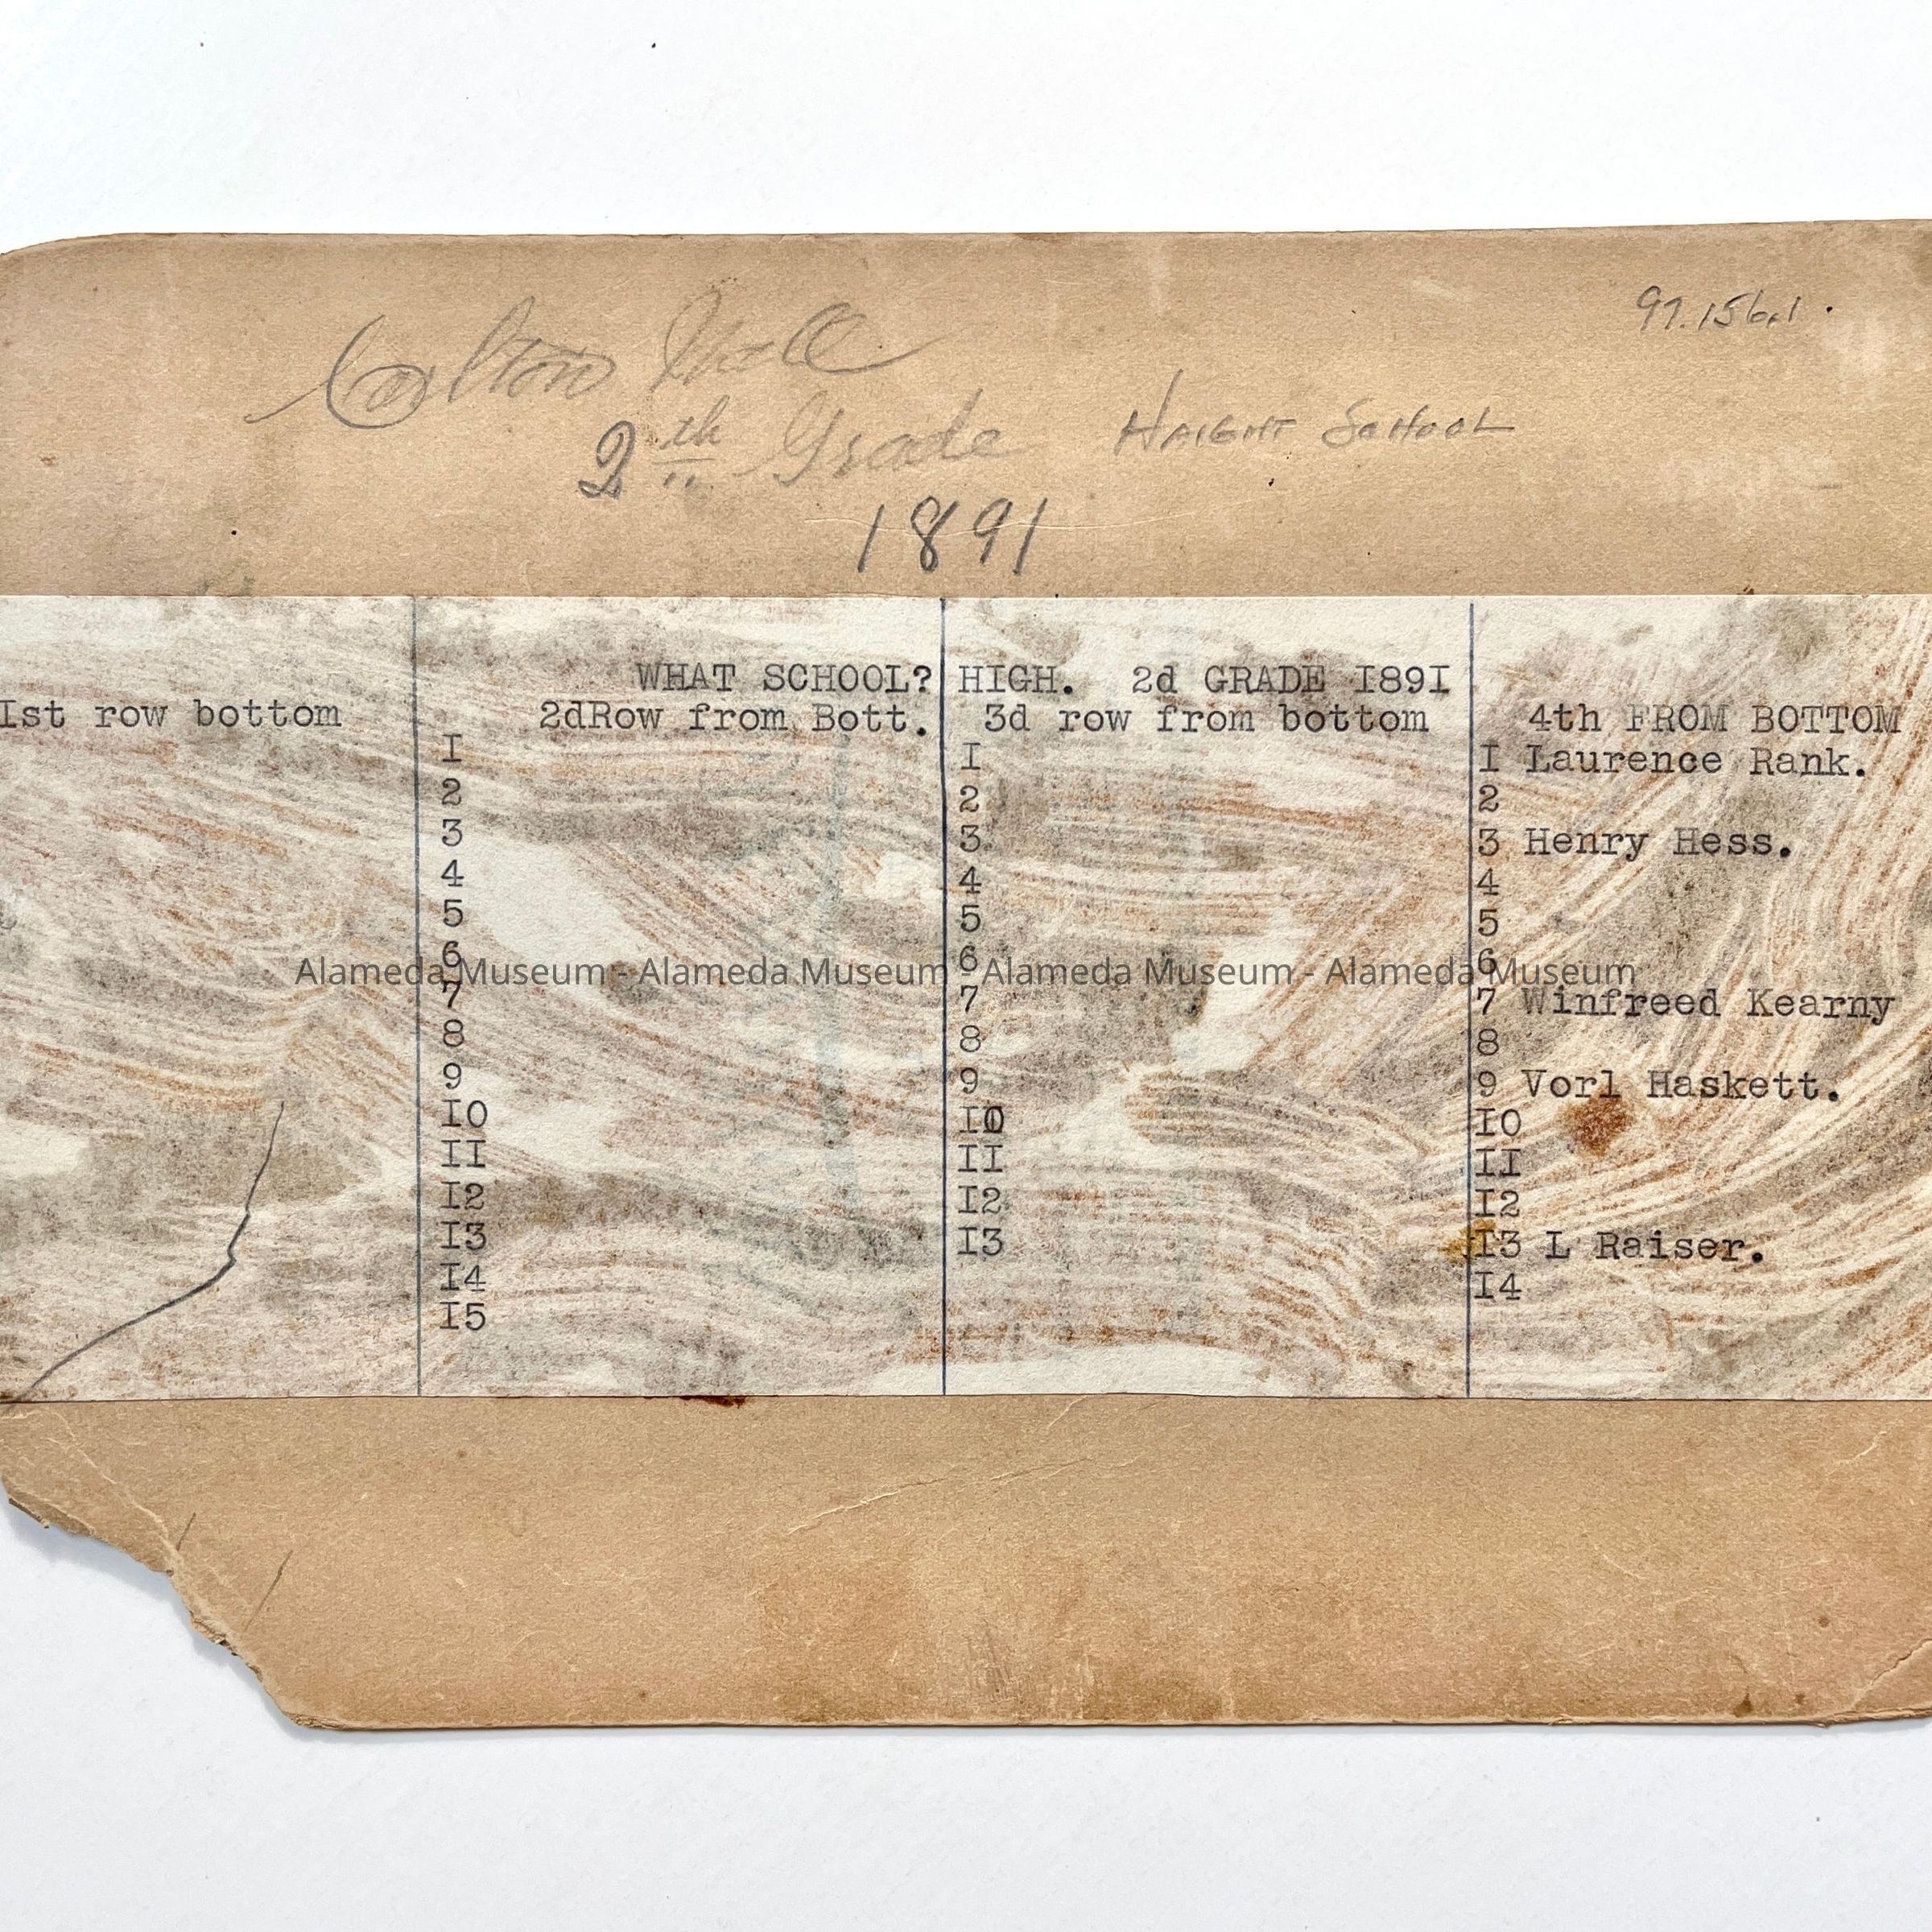 97.156.1.
Carlton Hall
2th Grade HAIGHT SCHOOL
1891
WHAT SCHOOL? HIGH. 2d GRADE I89I
Ist row bottom 2dRow from Bott. 3d row from bottom 4th FROM BOTTOM
I I I Laurence Rank.
2 2 2
3 3 3 Henry Hess.
4 4 4
5 5 5
6 6 6
Alameda Museum - Alameda Museum - Alameda Museum - Alameda Museum
7 7 7 Winfreed Kearny
8 8 8
9 9 9 Vorl Haskett.
I0 I0 I0
II II II
I2 I2 I2
I3 I3 I3 L Raiser.
I4 I4
I5